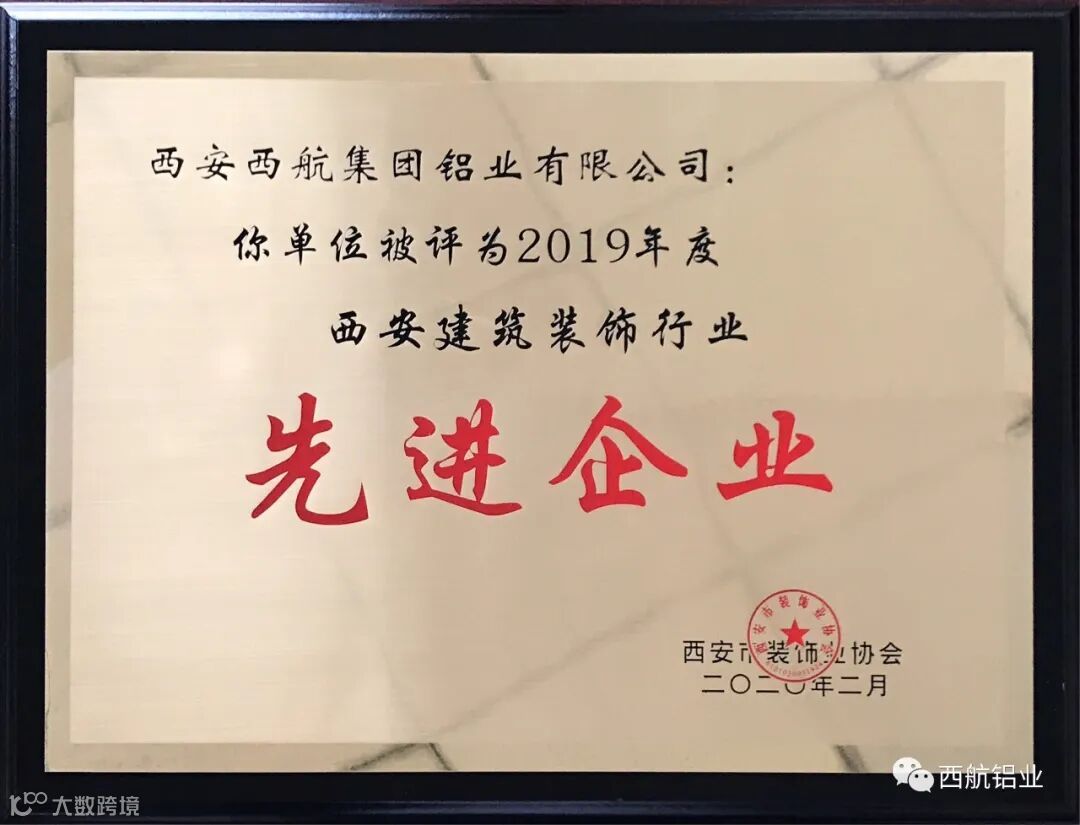 西安西航集团铝业有限公司：
你单位被评为2019年度
西安建筑装饰行业
先进企业
西安市装饰业协会
西安市装饰业协会
二〇二〇年二月
西航铝业
大数跨境